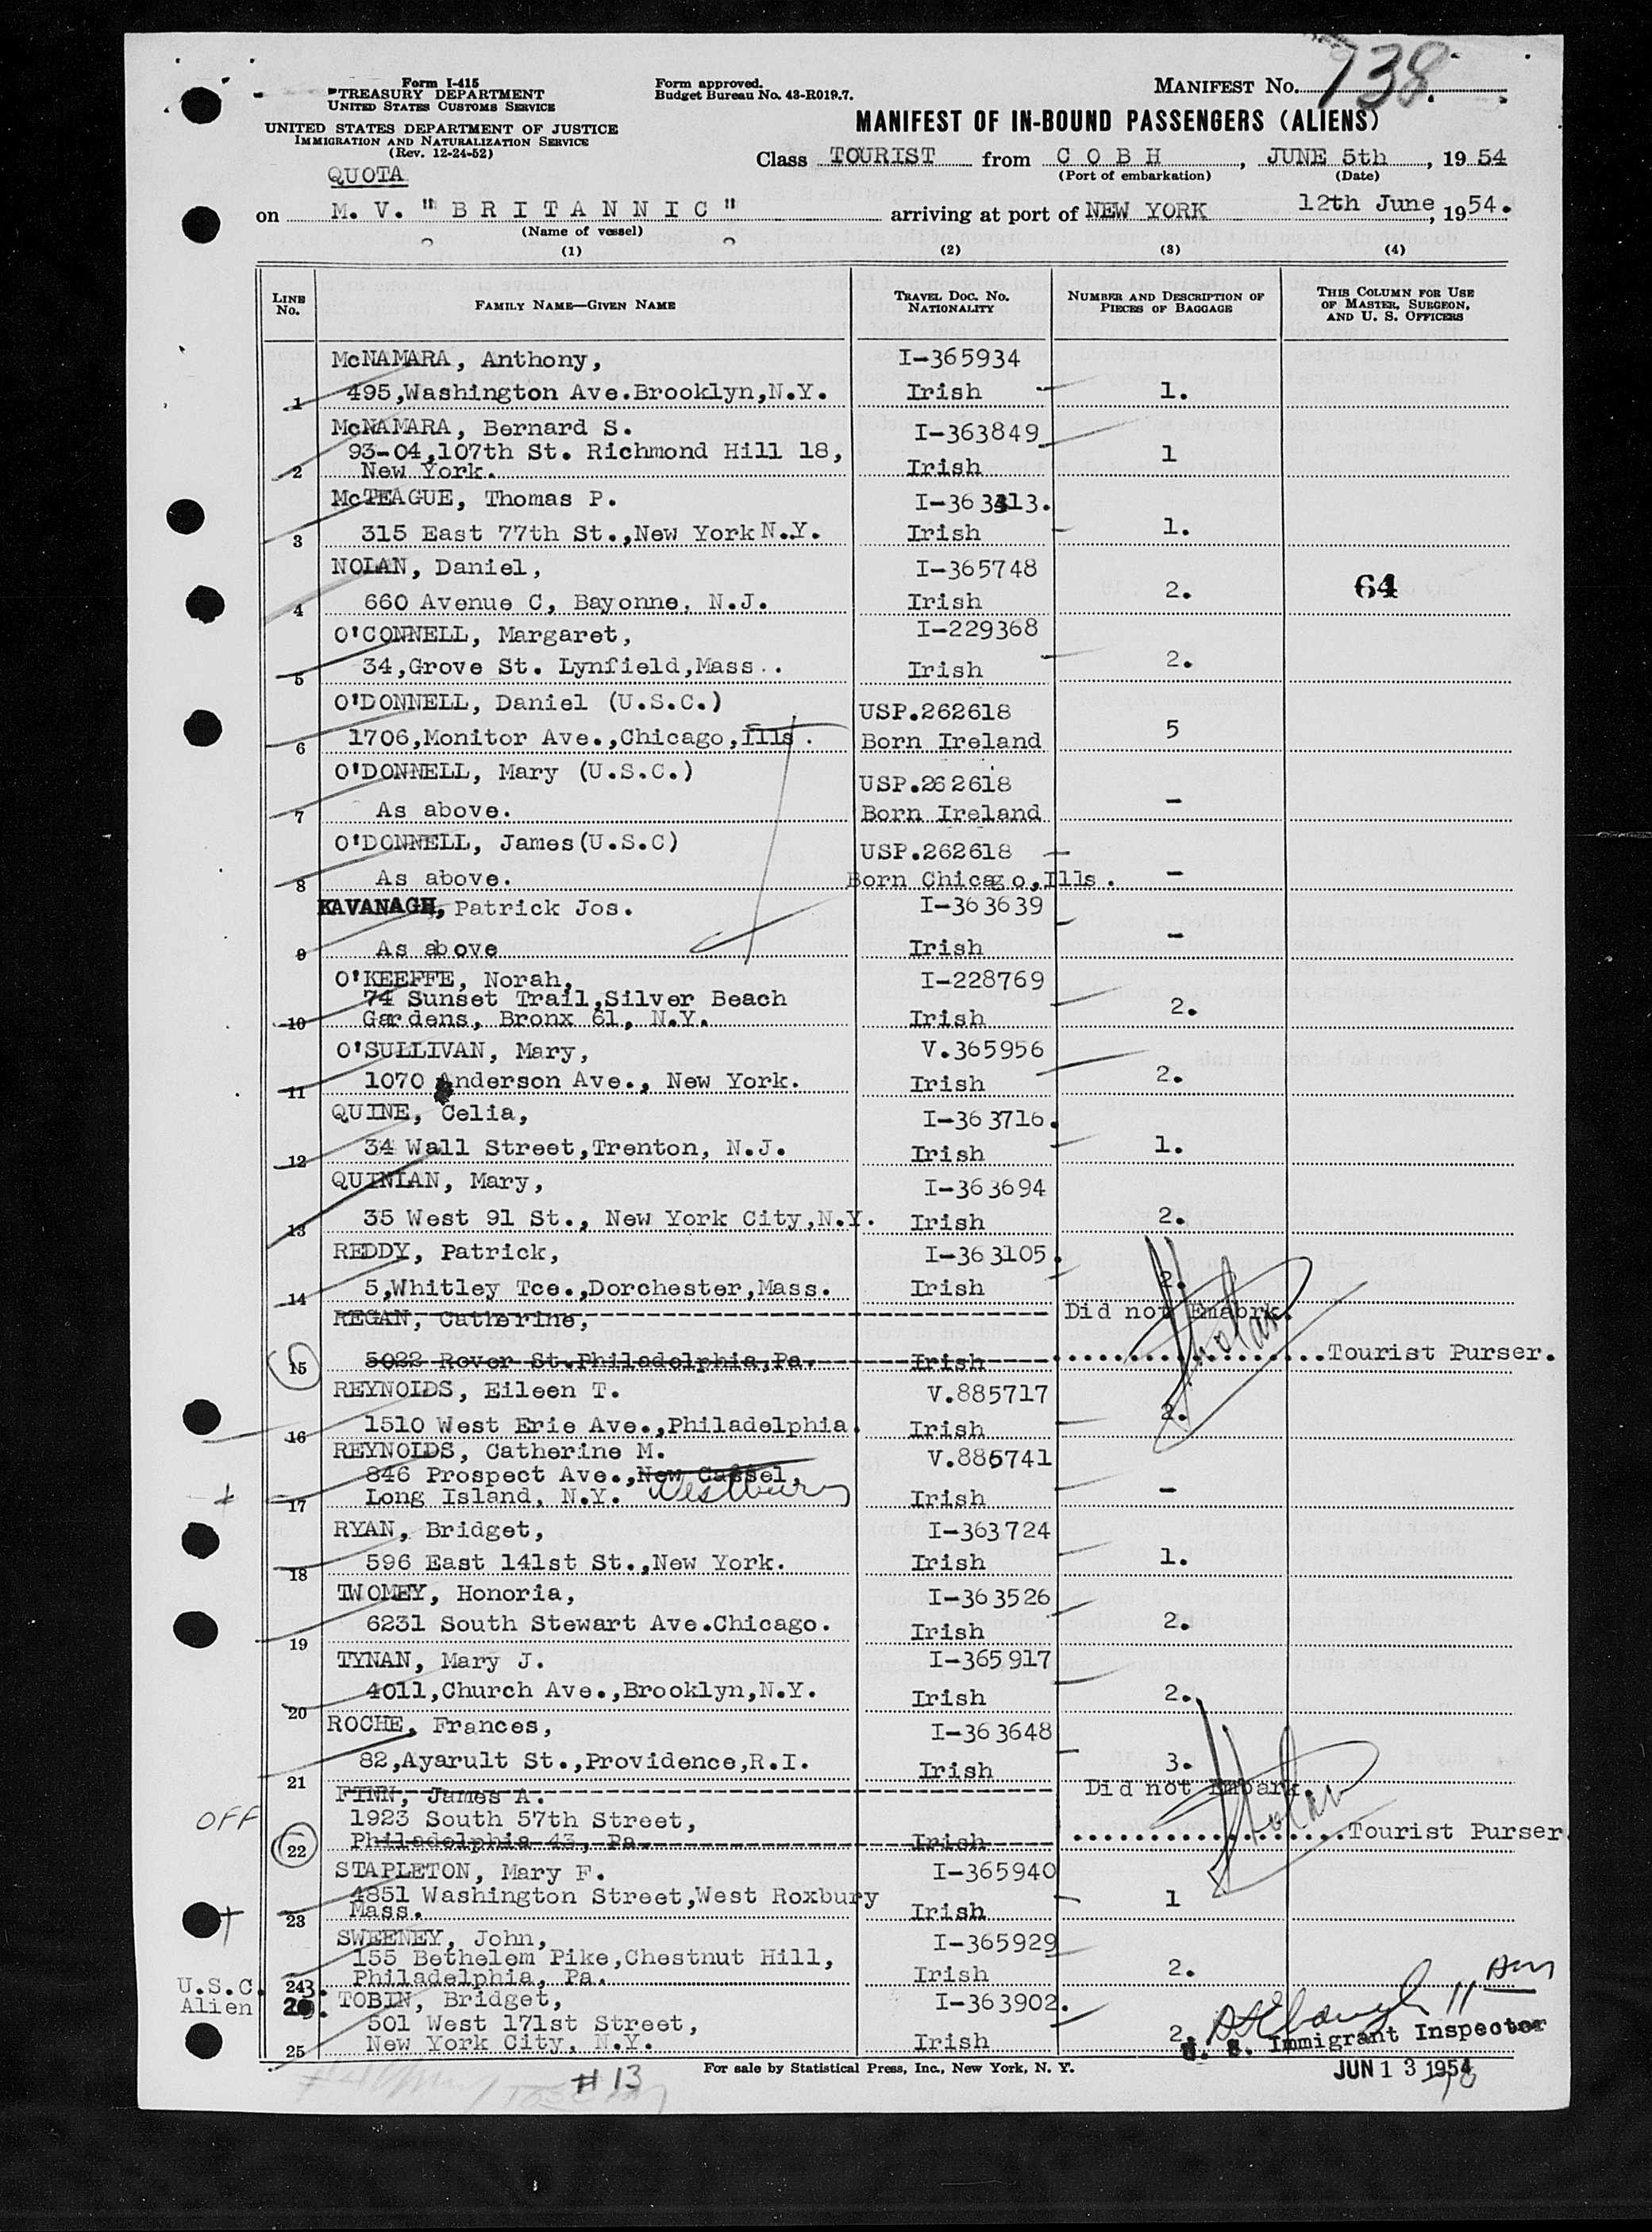 738
Form I-415
TREASURY DEPARTMENT
UNITED STATES CUSTOMS SERVICE
UNITED STATES DEPARTMENT OF JUSTICE
IMMIGRATION AND NATURALIZATION SERVICE
(Rev. 12-24-52)
QUOTA
Form approved.
Budget Bureau No. 43-R019.7.
MANIFEST No.
MANIFEST OF IN-BOUND PASSENGERS (ALIENS)
Class TOURIST from C O B H, JUNE 5th, 19 54
(Port of embarkation) (Date)
on M. V. "B R I T A N N I C" arriving at port of NEW YORK 12th June, 1954.
(Name of vessel)
(1) (2) (3) (4)
LINE No. FAMILY NAME—GIVEN NAME TRAVEL DOC. NO. NATIONALITY NUMBER AND DESCRIPTION OF PIECES OF BAGGAGE THIS COLUMN FOR USE OF MASTER, SURGEON, AND U. S. OFFICERS
McNAMARA, Anthony, I-365934
1 495,Washington Ave.Brooklyn,N.Y. Irish 1.
McNAMARA, Bernard S. I-363849
93-04,107th St. Richmond Hill 18, 1
2 New York. Irish
McTEAGUE, Thomas P. I-363313.
3 315 East 77th St.,New York N.Y. Irish 1.
NOLAN, Daniel, I-365748
4 660 Avenue C, Bayonne, N.J. Irish 2. 64
O'CONNELL, Margaret, I-229368
5 34,Grove St. Lynfield,Mass.. Irish 2.
O'DONNELL, Daniel (U.S.C.) USP.262618
6 1706,Monitor Ave.,Chicago,Ills. Born Ireland 5
O'DONNELL, Mary (U.S.C.) USP.262618
7 As above. Born Ireland -
O'DONNELL, James(U.S.C) USP.262618
8 As above. Born Chicago,Ills. -
KAVANAGH, Patrick Jos. I-363639
9 As above Irish -
O'KEEFFE, Norah, I-228769
74 Sunset Trail,Silver Beach
10 Gardens, Bronx 61, N.Y. Irish 2.
O'SULLIVAN, Mary, V.365956
11 1070 Anderson Ave., New York. Irish 2.
QUINE, Celia, I-363716.
12 34 Wall Street,Trenton, N.J. Irish 1.
QUINLAN, Mary, I-363694
13 35 West 91 St., New York City,N.Y. Irish 2.
REDDY, Patrick, I-363105.
14 5,Whitley Tce.,Dorchester,Mass. Irish 2.
REGAN, Catherine, Did not Emabrk.
15 5022 Rover St.Philadelphia,Pa. Irish Tourist Purser.
REYNOLDS, Eileen T. V.885717
16 1510 West Erie Ave.,Philadelphia. Irish 2.
REYNOLDS, Catherine M. V.885741
846 Prospect Ave.,New Cassel,
17 Long Island, N.Y. Westbury Irish -
RYAN, Bridget, I-363724
18 596 East 141st St.,New York. Irish 1.
TWOMEY, Honoria, I-363526
19 6231 South Stewart Ave.Chicago. Irish 2.
TYNAN, Mary J. I-365917
20 4011,Church Ave.,Brooklyn,N.Y. Irish 2.
ROCHE, Frances, I-363648
21 82,Ayarult St.,Providence,R.I. Irish 3.
FINN, James A. Did not Embark.
OFF 1923 South 57th Street,
22 Philadelphia 43, Pa. Irish Tourist Purser
STAPLETON, Mary F. I-365940
4851 Washington Street,West Roxbury 1
23 Mass. Irish
SWEENEY, John, I-365929
155 Bethelem Pike,Chestnut Hill,
U.S.C. 3. 24 Philadelphia, Pa. Irish 2.
Alien 20. TOBIN, Bridget, I-363902.
501 West 171st Street,
25 New York City, N.Y. Irish 2.
U. S. Immigrant Inspector
For sale by Statistical Press, Inc., New York, N. Y.
JUN 13 1954
# 13